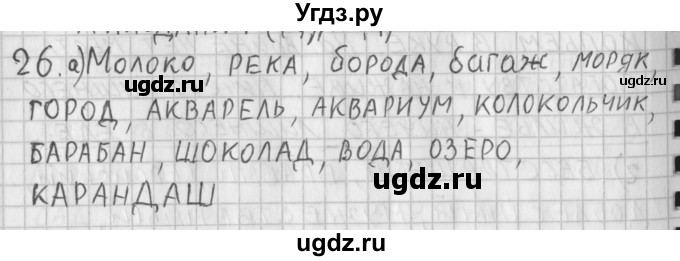 Угдз.ру
26. а) Молоко, РЕКА, БОРОДА, багаж, МОРЯК,
ugdz.ru
ugdz.ru
ГОРОД, АКВАРЕЛЬ, АКВАРИУМ, КОЛОКОЛЬЧИК,
БАРАБАН, ШОКОЛАД, ВОДА, ОЗЕРО,
ugdz.ru
КАРАНДАШ
ugdz.ru